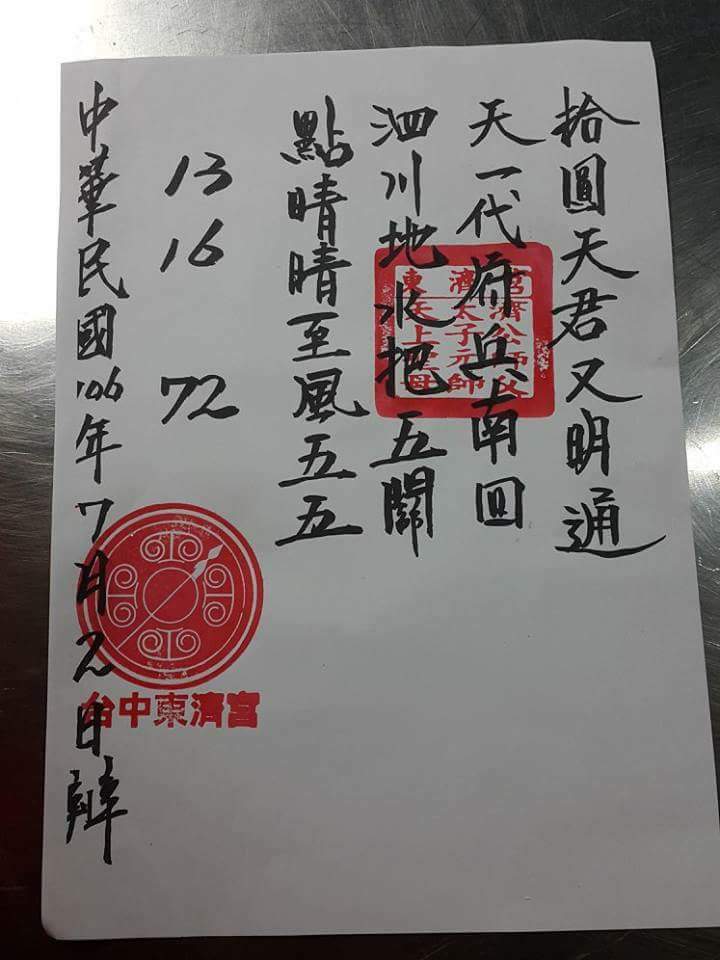 拾圓天君又明通
天一代府兵南回
泗川地水把五關
點晴晴至風五五
13
16
72
中華民國106年7月2日辦
東濟宮
濟公師父
太子元師
天上聖母
台中東濟宮